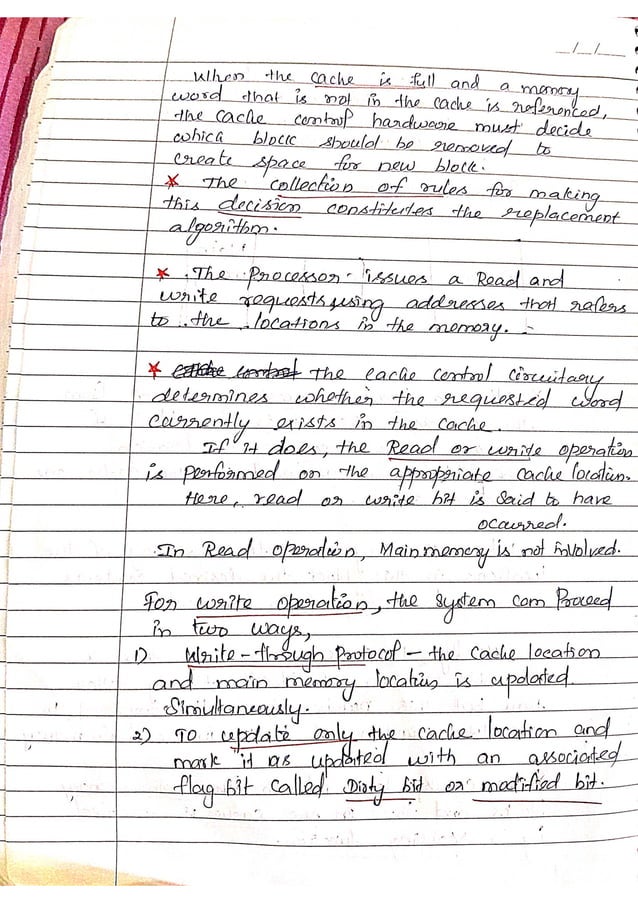 When the cache is full and a memory
word that is not in the cache is referenced,
the cache control hardware must decide
which block should be removed to
create space for new block.
* The collection of rules for making
this decision constitutes the replacement
algorithm.
* The Processor issues a Read and
write requests using addresses that refers
to the locations in the memory.
* cache control The cache control circuitary
determines whether the requested word
currently exists in the cache.
If it does, the Read or write operation
is performed on the appropriate cache location.
Here, read or write hit is said to have
ocurred.
In Read operation, Main memory is not involved.
For write operation, the system can Proceed
in two ways,
1) Write-through Protocol - the cache location
and main memory locations is updated
Simultaneously.
2) To update only the cache location and
mark it as updated with an associated
flag bit called Dirty bit or modified bit.